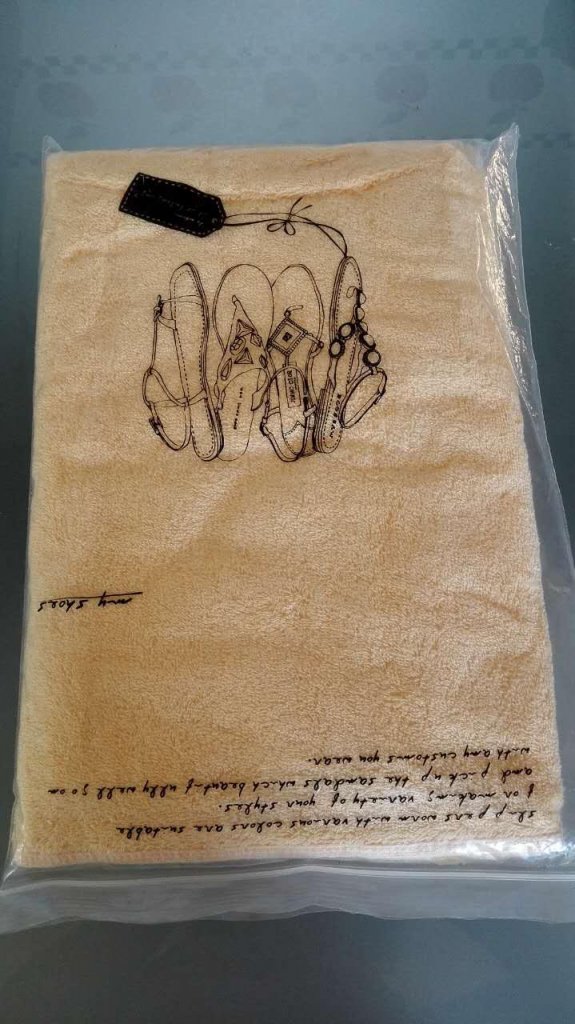 slippers worn with various colors are suitable
for making variety of your styles.
and pick up the sandals which beautifully well go on
with any customs you wear.
my shoes